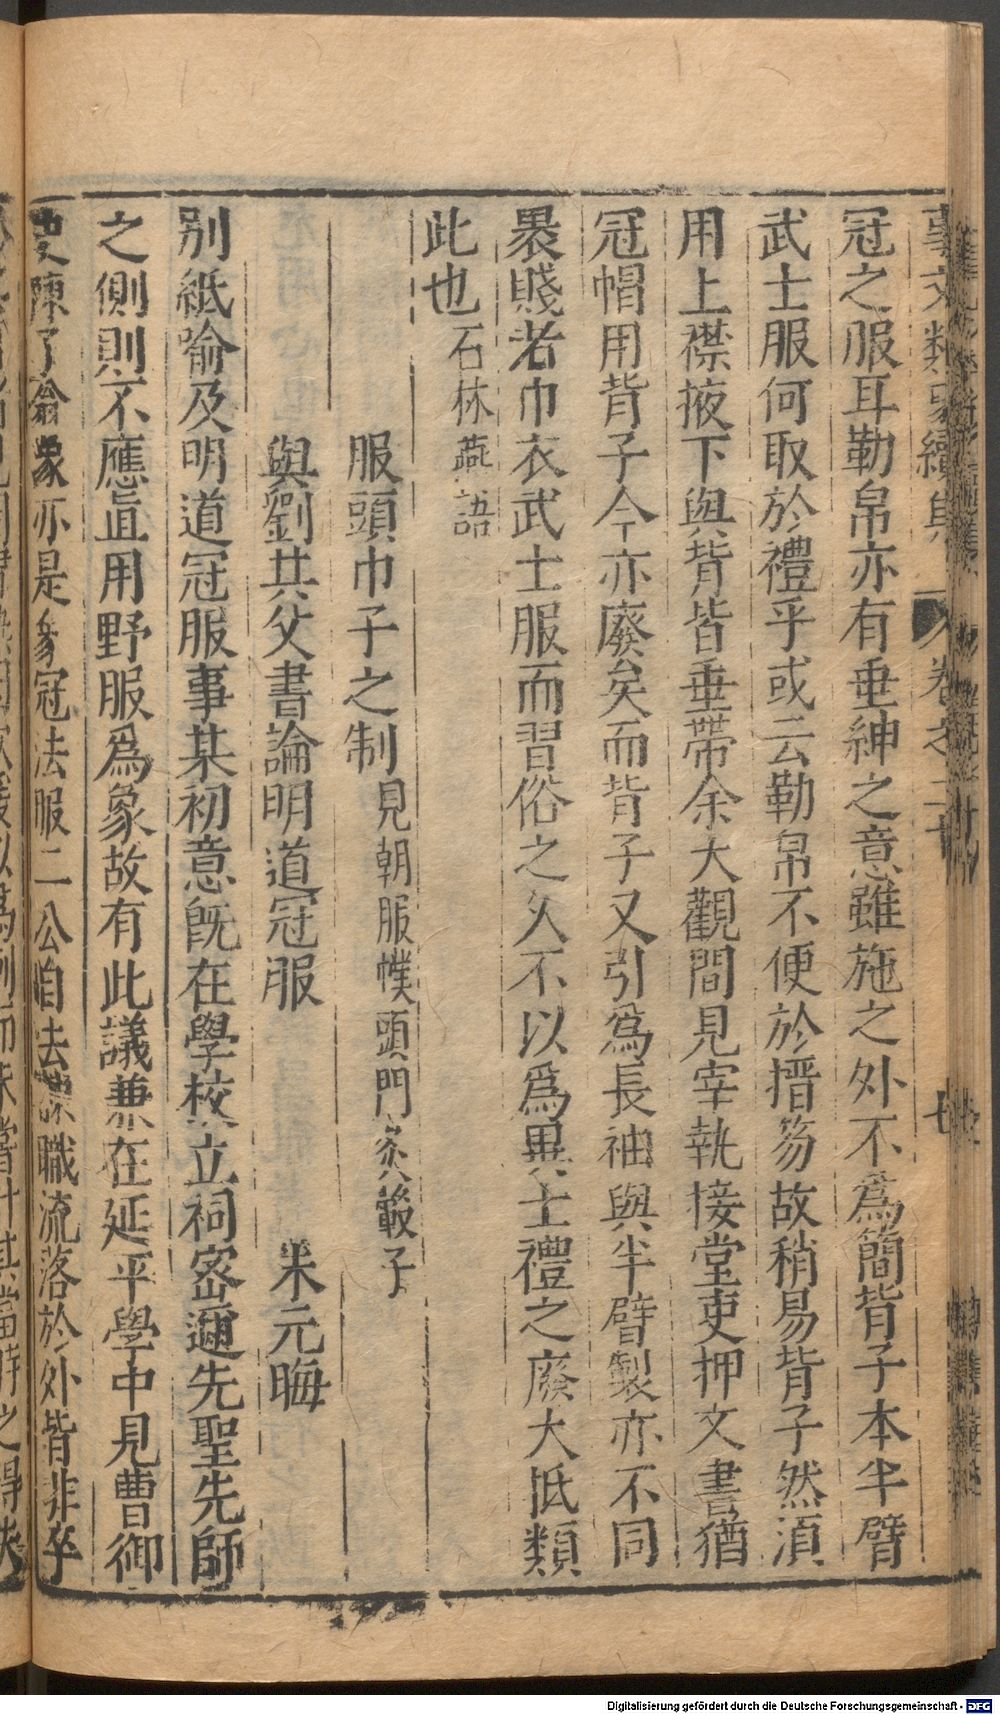 事文類聚續集 卷之二十 七
冠之服耳勒帛亦有垂紳之意雖施之外不爲簡背子本半臂
武士服何取於禮乎或云勒帛不便於搢笏故稍易背子然須
用上襟掖下與背皆垂帶余大觀間見宰執接堂吏押文書猶
冠帽用背子今亦廢矣而背子又引爲長袖與半臂製亦不同
裹賤者巾衣武士服而習俗之久不以爲異士禮之廢大抵類
此也石林燕語
服頭巾子之制見朝服幞頭門
與劉共父書論明道冠服 朱元晦
別紙喻及明道冠服事某初意旣在學校立祠密邇先聖先師
之側則不應直用野服爲象故有此議兼在延平學中見曹御
史陳了翁象亦是豸冠法服二公皆法職流落於外皆非卒
Digitalisierung gefördert durch die Deutsche Forschungsgemeinschaft - DFG